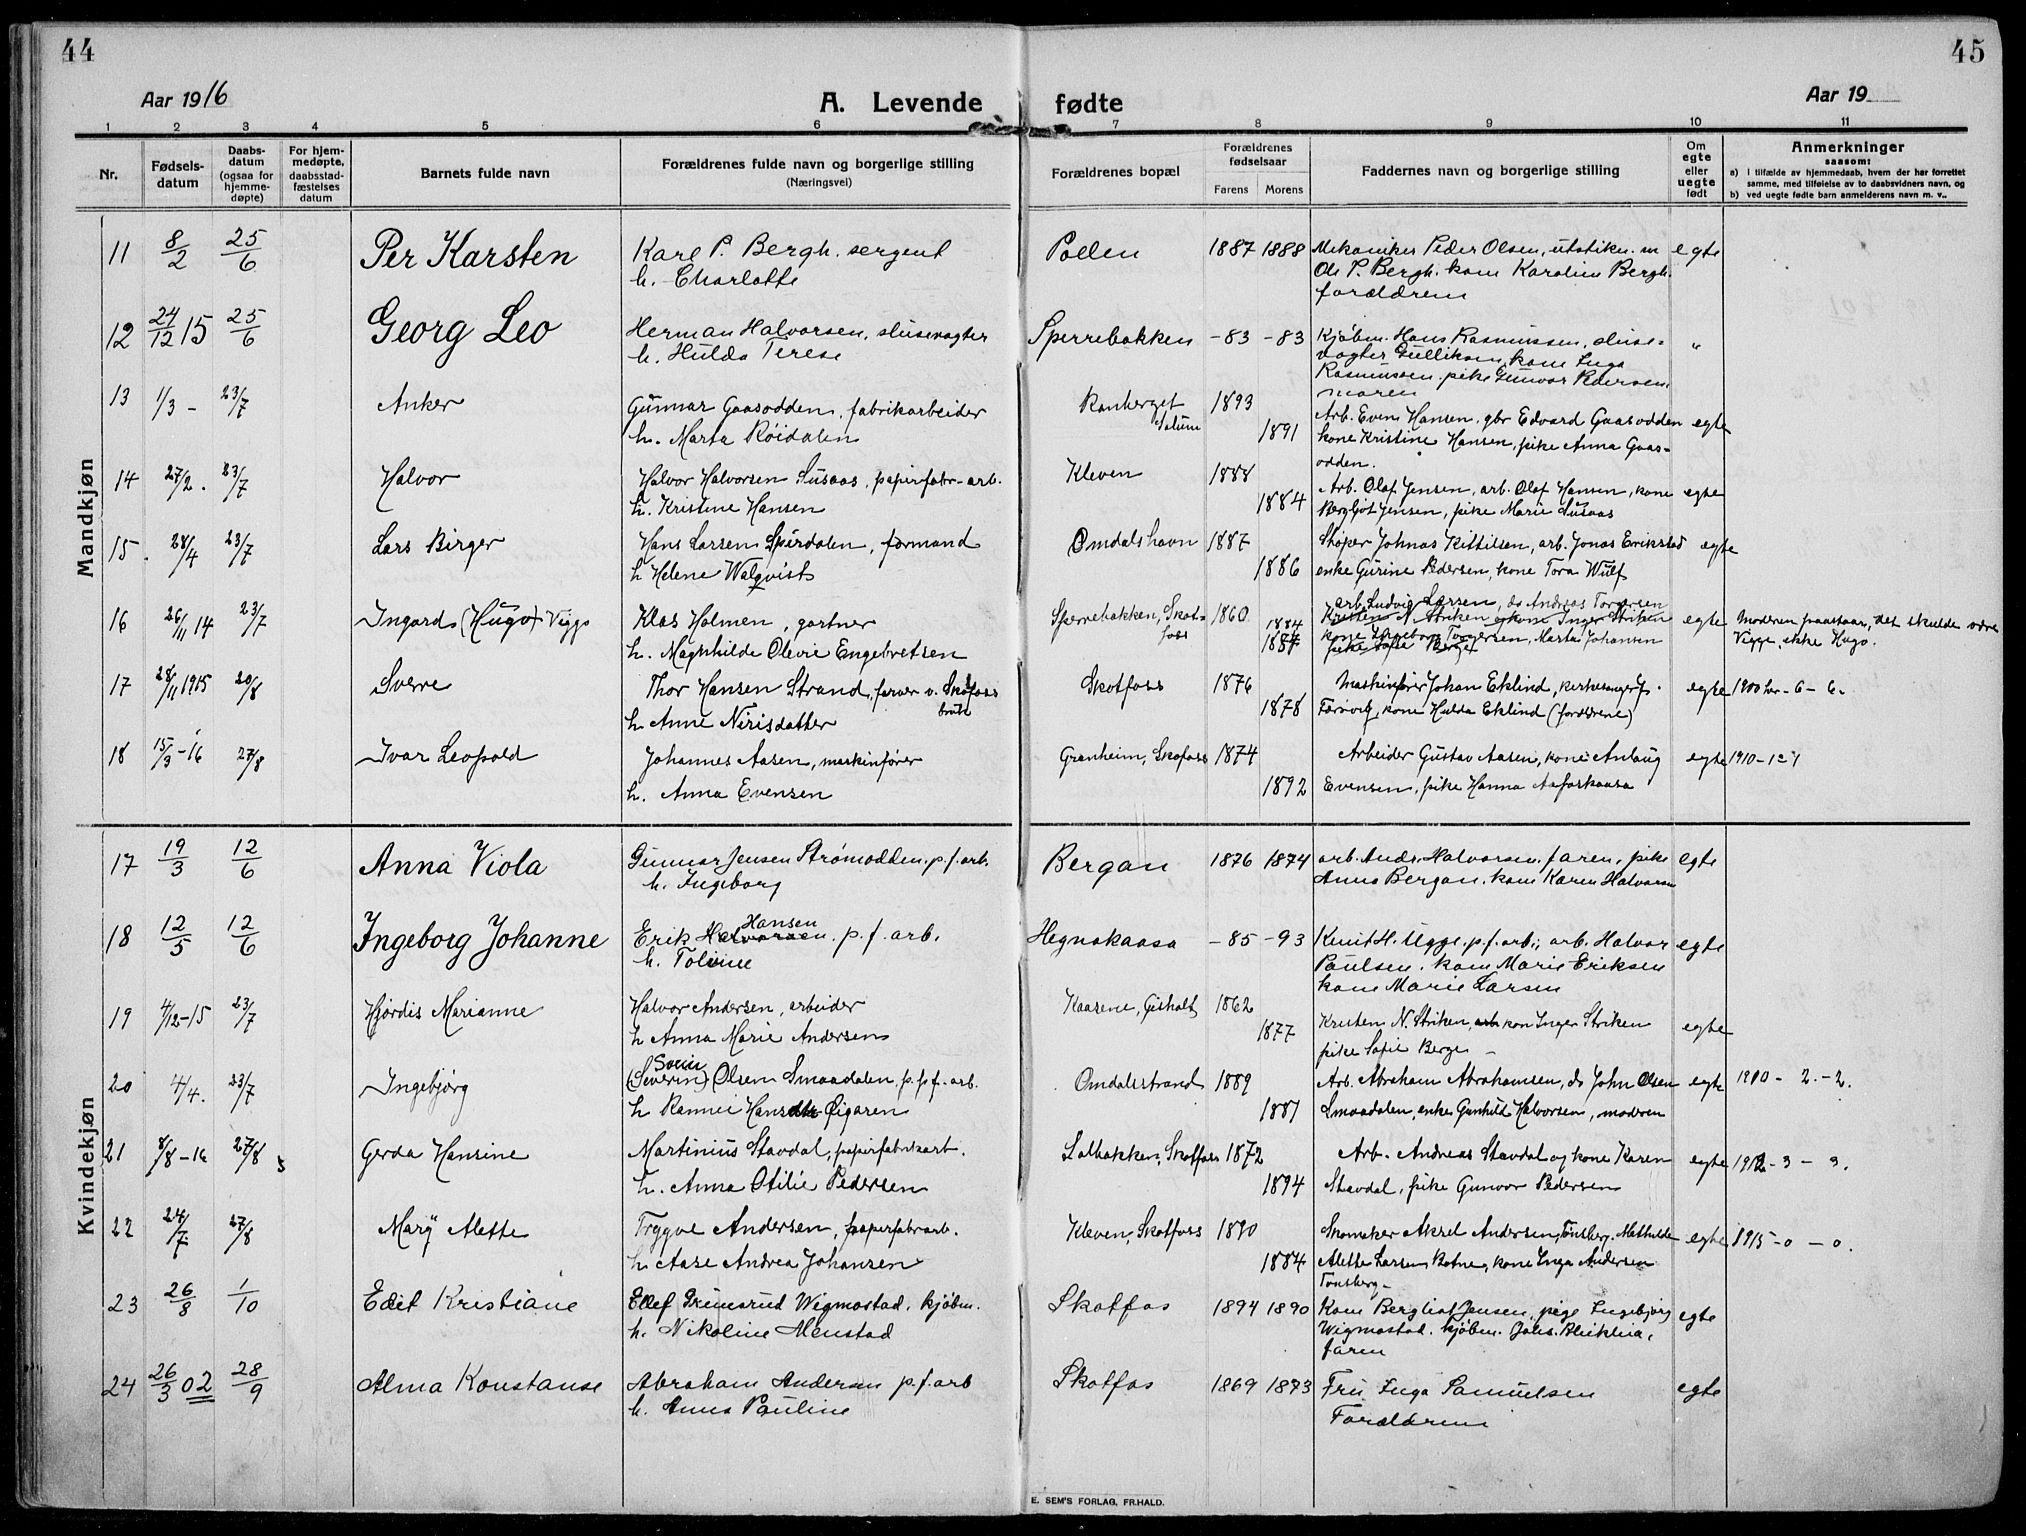 44
45
Aar 1916
A. Levende fødte
Aar 19
1 2 3 4 5 6 7 8 9 10 11
Nr.
Fødsels-
datum
Daabs-
datum
(ogsaa for
hjemme-
døpte)
For hjem-
medøpte,
daabsstad-
fæstelses
datum
Barnets fulde navn
Forældrenes fulde navn og borgerlige stilling
(Næringsvei)
Forældrenes bopæl
Forældrenes
fødselsaar
Farens Morens
Faddernes navn og borgerlige stilling
Om
egte
eller
uegte
født
Anmerkninger
saasom:
a) I tilfælde av hjemmedaab, hvem der har forrettet
samme, med tilføielse av to daabsvidners navn, og
b) ved uegte fødte barn anmelderens navn m. v..
Mandkjøn
11 8/2 25/6 Per Karsten Karl P. Bergh. sergent Pollen 1887 1888 Mekaniker Peder Olsen, utstikn. m egte
h. Charlotte Ole P. Bergh. kone Karoline Bergh.
forældrene
12 24/12 15 25/6 Georg Leo Herman Halvorsen, slusevogter Sperrebakken -83 -83 Kjøbm. Hans Rasmussen, sluse- "
h. Hulda Terese vogter Gulliksen, kone Inga
Rasmussen. pike Gunvor Pedersen
moren
13 1/3 - 23/7 Anker Gunnar Gaasodden, fabrikarbeider 1893
h. Marta Røidalen 1891 Arb. Even Hansen, gbr Edvard Gaasodden egte
kone Kristine Hansen, pike Anna Gaas-
odden.
14 27/2. 23/7 Halvor Halvor Halvorsen Susaas, papirfabr-arb. Kleven 1888
h. Kristine Hansen 1884 Arb. Olaf Jensen, arb. Olaf Hansen, kone egte
Bergljot Jensen, pike Marie Susaas
15. 28/4 23/7 Lars Birger Hans Larsen Spirdalen, formand Omdalshavn 1887 Johnas Kittilsen, arb. Jonas Erikstad egte
h Helene Walqvist 1886 enke Gurine Pedersen, kone Tora Wulf
16 26/11 14 23/7 Ingards (Hugo) Viggo Klas Holmen, gartner Sperrebakken, Skot- 1860 arb. Ludvig Larsen, do Andreas Torgersen egte Moderen paastaar, det skulde være
foss 1884 Kristen N. Striken kone Inger Striken Viggo, ikke Hugo.
h. Magnhilde Olevie Engebretsen 1887 kone Ingeborg Torgersen, Marta Johansen
pike Sofie Berge
17 28/11 1915 20/8 Sverre Thor Hansen Strand, farver v. Skotfoss Skotfoss 1876 Maskinfører Johan Eklind, kirkesanger J. egte 1900 - 6 - 6.
bruk
h. Anne Nirisdatter 1878 kone Hulda Eklind (forældrene)
18 15/3 -16 27/8 Ivar Leopold Johannes Aasen, maskinfører Granheim, Skofoss 1874 Arbeider Gustav Aasen, kone Anlaug egte 1910-1-1
h. Anna Evensen 1892 Evensen, pike Hanna Aafoskaasa
Kvindekjøn
17 19/3 12/6 Anna Viola Gunnar Jensen Strømodden. p.f.arb. Bergan 1876 1874 arb. Ands. Halvorsen. faren, pike egte
h. Ingeborg Anna Bergan. kone Karen Halvorsen
18 12/5 12/6 Ingeborg Johanne Erik Halvorsen Hansen. p.f.arb. Hegnakaasa -85 -93 Knut H. Ugge. p.f.arb., arb. Halvor egte
h. Toline Paulsen. kone Marie Eriksen
kone Marie Larsen
19 4/12-15 23/7 Hjørdis Marianne Halvor Andersen, arbeider Kaasene, Gisholt 1862
h Anna Marie Andersen 1877 Kristen N. Striken, arb kon Inger Striken egte
pike Sofie Berge
20 4/4. 23/7 Ingebjørg (Severin) Sørin Olsen Smaadalen, p.p.f. arb. Omdalsstrand 1889 Arb. Abraham Abrahamsen, do John Olsen egte 1910 - 2. - 2.
h Rannei Hansdtr Øigaren 1887 Smaadalen, enke Gunhild Halvorsen, moderen
21 8/8-16 27/8 Gerda Hansine Martinius Stavdal, papirfabrikarb. Lølbakken, Skotfoss 1872 Arb. Andreas Stavdal og kone Karen egte 1912 - 3 - 3.
h. Anna Otilie Pedersen 1894 Stavdal, pike Gunvor Pedersen
22 24/7 27/8 Mary Alette Trygve Andersen, papirfabrarb. Kleven, Skotfoss 1890 Skomaker Aksel Andersen, Tønsberg, Mathilde egte 1915 - 0 - 0.
h Aase Andrea Johansen 1884 Alette Larsen, Botne, kone Inga Andersen
Tønsberg
23 26/8 1/10 Edit Kristiane Ellef Grimsrud Wigmostad. kjøbm. Skotfos 1894 1890 Kone Bergliot Jensen, pige Ingebjørg egte
h. Nikoline Menstad Wigmostad. kjøbm. Johs. Blekklia,
faren
24 26/3 02 28/9 Alma Konstanse Abraham Andersen p.f.arb Skotfos 1869 1873 Fru Inga Samuelsen egte
h. Anna Pauline Forældrene
E. SEM'S FORLAG, FR.HALD.